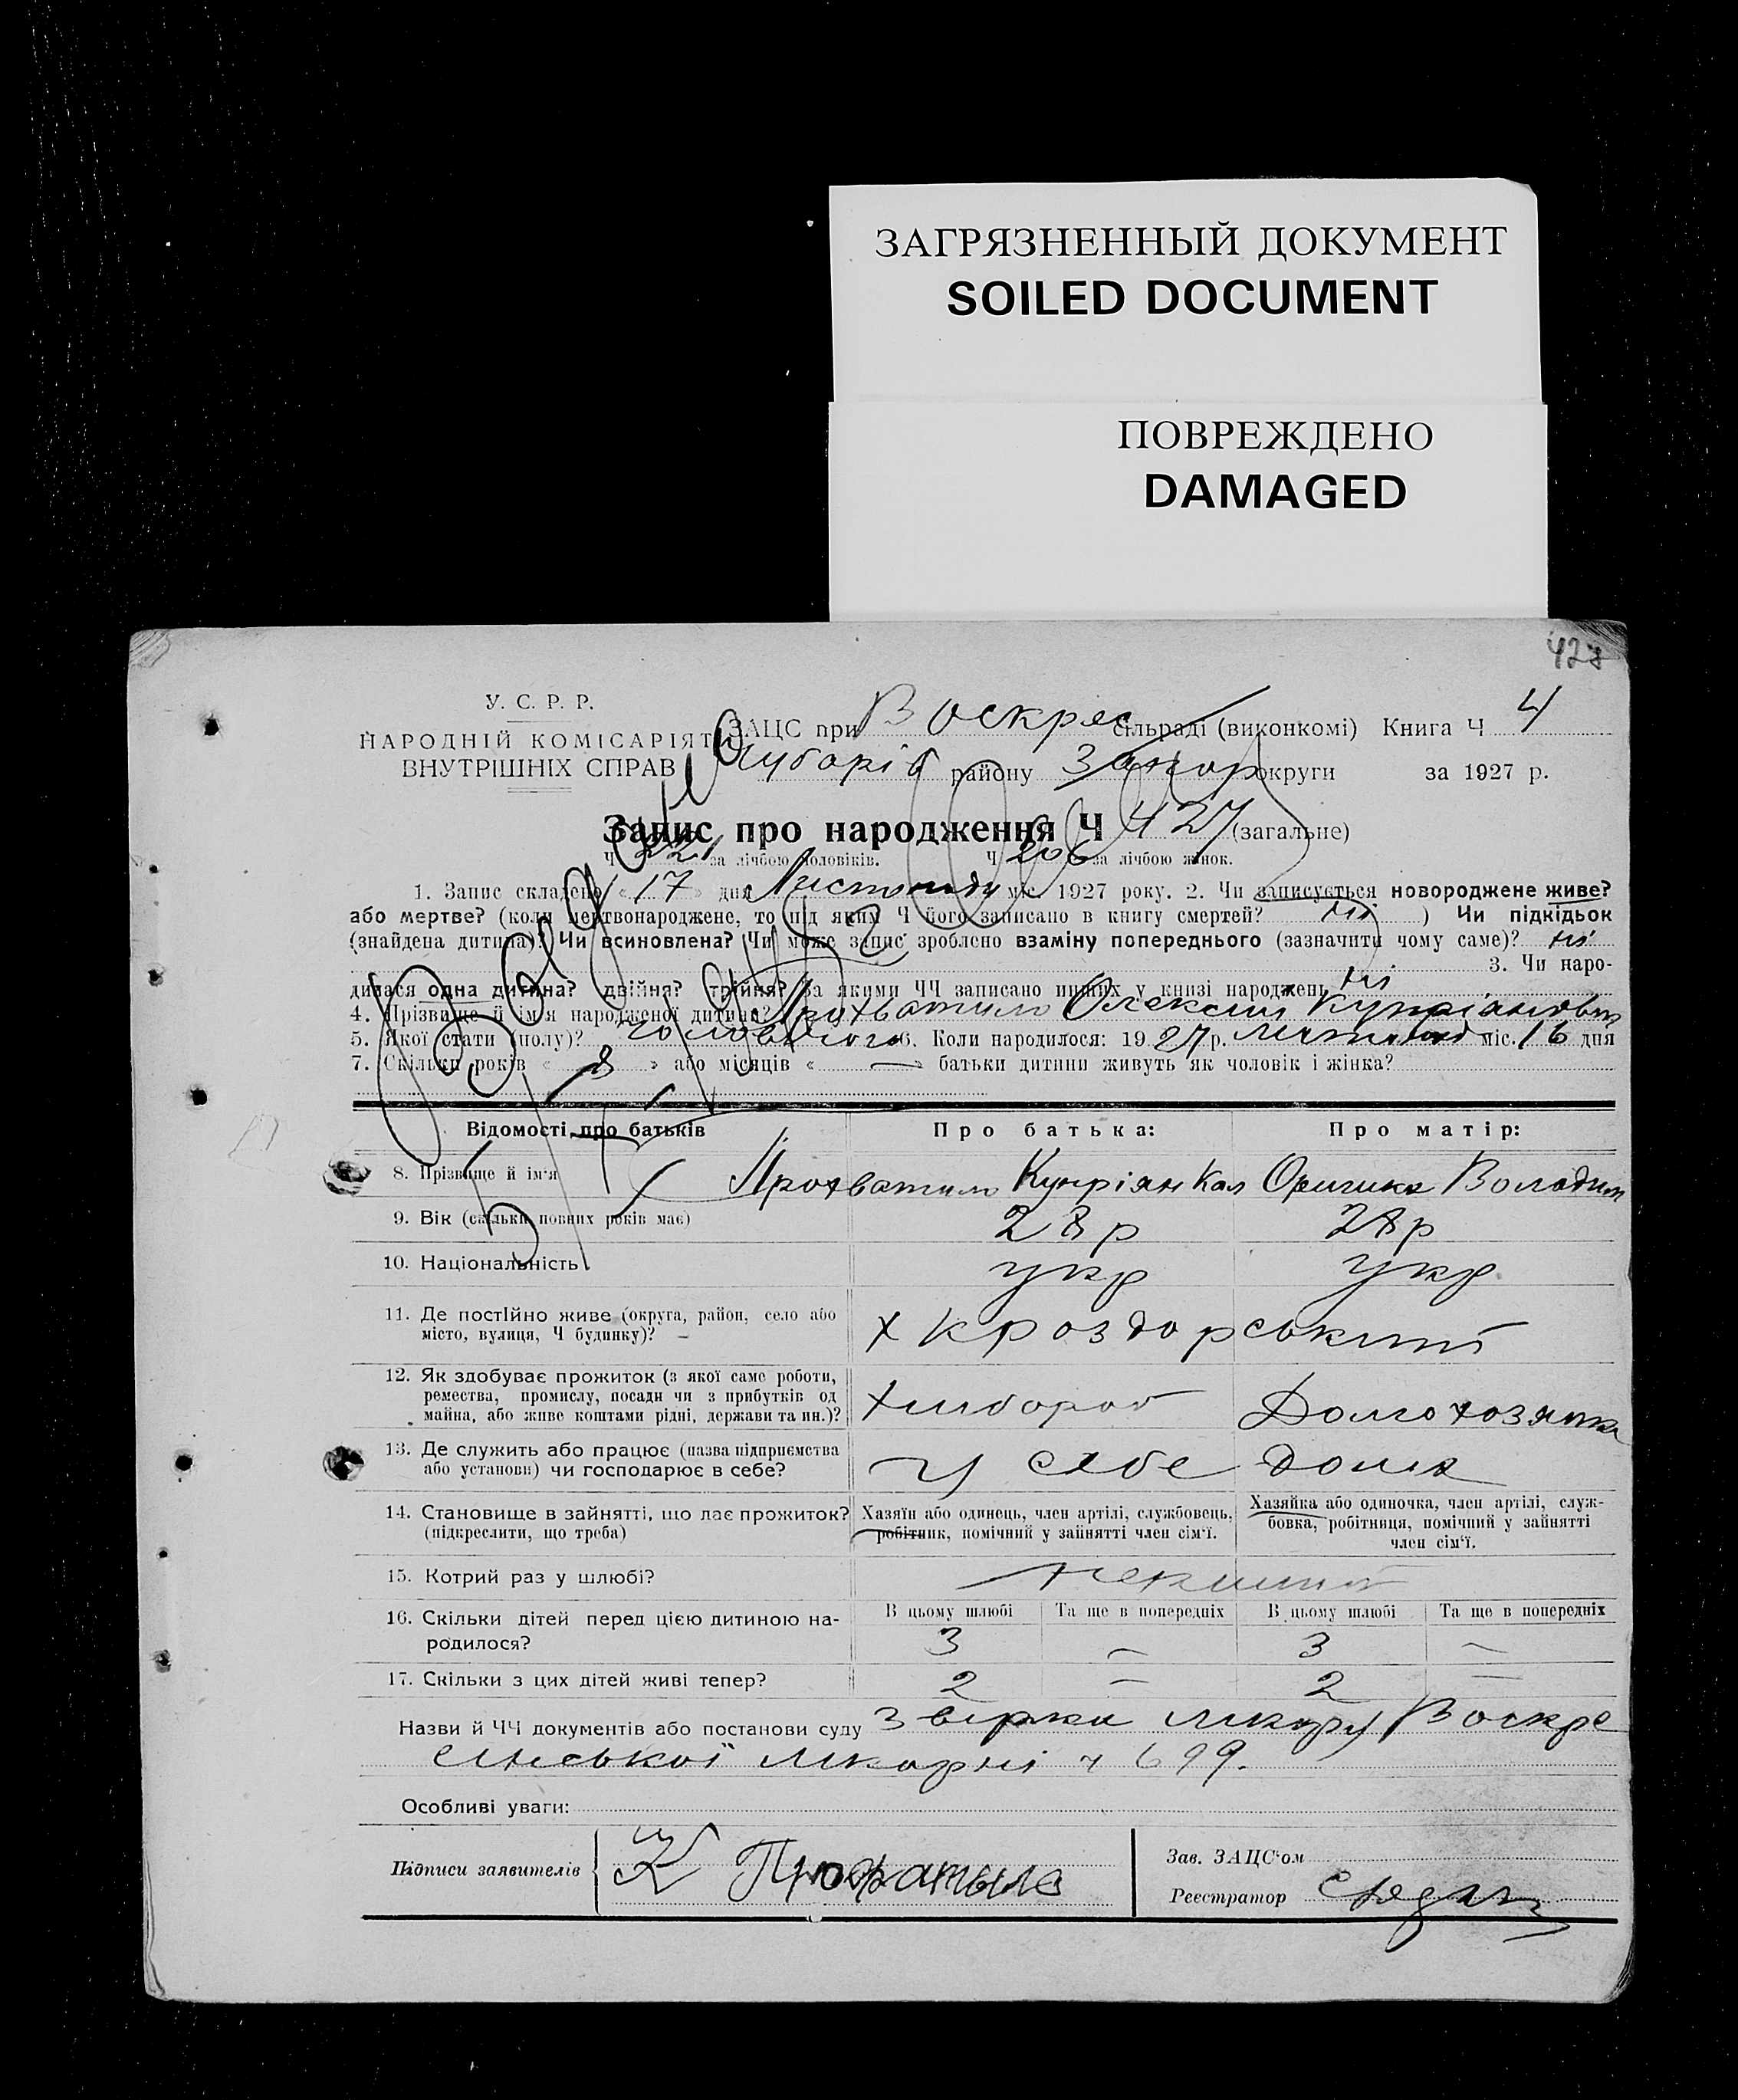 ЗАГРЯЗНЕННЫЙ ДОКУМЕНТ
SOILED DOCUMENT
ПОВРЕЖДЕНО
DAMAGED
427
У. С. Р. Р.
НАРОДНІЙ КОМІСАРІЯТ
ВНУТРІШНІХ СПРАВ
ЗАЦС при Воскрес сільраді (виконкомі) Книга Ч 4
Чубарів району Запор округи за 1927 р.
Запис про народження Ч 427 (загальне)
Ч 221 за лічбою чоловіків. Ч 206 за лічбою жінок.
1. Запис складено « 17 » дня Листопаду міс. 1927 року. 2. Чи записується новороджене живе?
або мертве? (коли мертвонароджене, то під яким Ч його записано в книгу смертей? ні ) Чи підкідьок
(знайдена дитина)? Чи всиновлена? Чи може запис зроблено взаміну попереднього (зазначити чому саме)? ні
3. Чи наро-
дилася одна дитина? двійня? трійня? За якими ЧЧ записано инших у книзі народжень ні
4. Прізвище й ім'я народженої дитини? Прохватило Олексій Купріянович
5. Якої стати (полу)? чоловічого 6. Коли народилося: 1927 р. листопад міс. 16 дня
7. Скільки років « 8 » або місяців « — » батьки дитини живуть як чоловік і жінка?
Відомості про батьків Про батька: Про матір:
8. Прізвище й ім'я Прохватило Купріян Кал Оришка Володим
9. Вік (скільки повних років має) 28 р 28 р
10. Національність укр укр
11. Де постійно живе (округа, район, село або
місто, вулиця, Ч будинку)? х Кроздорський
12. Як здобуває прожиток (з якої саме роботи,
ремества, промислу, посади чи з прибутків од
майна, або живе коштами рідні, держави та ин.)? хлібороб
13. Де служить або працює (назва підприємства
або установи) чи господарює в себе? у себе дома
14. Становище в зайнятті, що дає прожиток? Хазяїн або одинець, член артілі, службовець, Хазяйка або одиночка, член артілі, служ-
(підкреслити, що треба) робітник, помічний у зайнятті член сім'ї. бовка, робітниця, помічний у зайнятті
член сім'ї.
15. Котрий раз у шлюбі?
16. Скільки дітей перед цією дитиною на- В цьому шлюбі Та ще в попередніх В цьому шлюбі Та ще в попередніх
родилося? 3 — 3 —
17. Скільки з цих дітей живі тепер? 2 — 2 —
Назви й ЧЧ документів або постанови суду Воскре
сенської лікарні ч 699.
Особливі уваги:
Підписи заявителів К Прохватыло
Зав. ЗАЦС'ом
Реєстратор